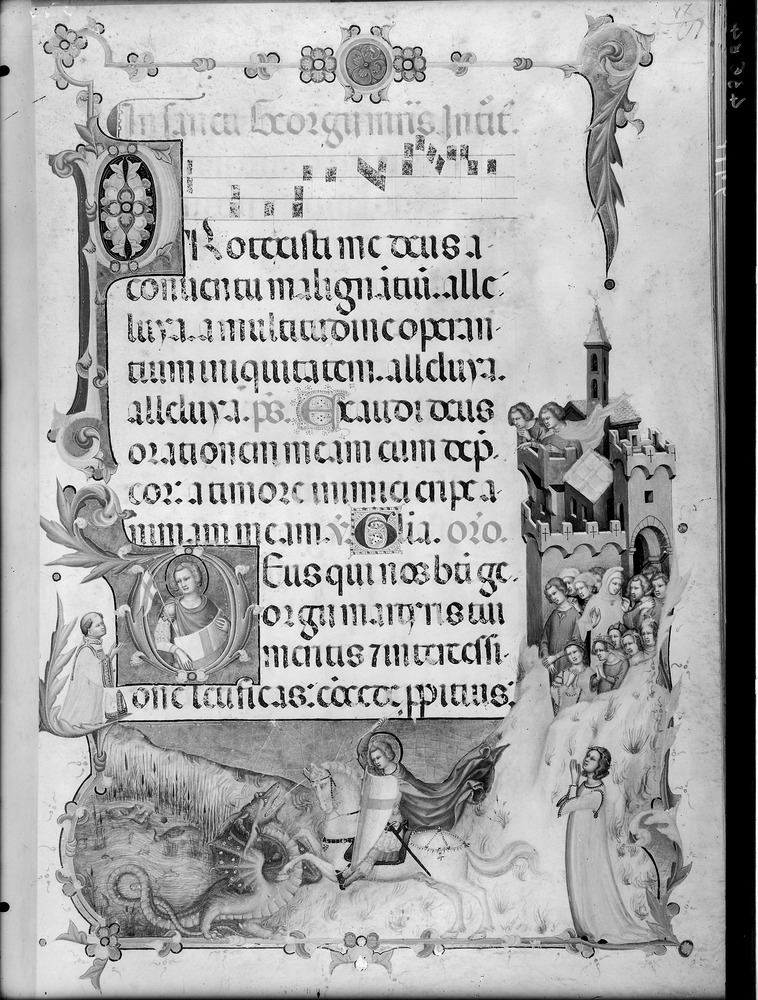 In sancti Georgii m̃is. Introit̃.
PRotexisti me deus a
conuentu malignãtiũ. alle-
luya. a multitudine operan-
tium iniquitatem. alleluya.
alleluya. p̄s. Exaudi deus
orationem meam cum dep̄-
cor: a timore inimici eripe a-
nimam meam. ℣. Gl̄ia. or̄o.
DEus qui nos bt̄i ge-
orgii martyris tui
meritis ⁊ intercessi-
one letificas: cōcede ꝓpitius: